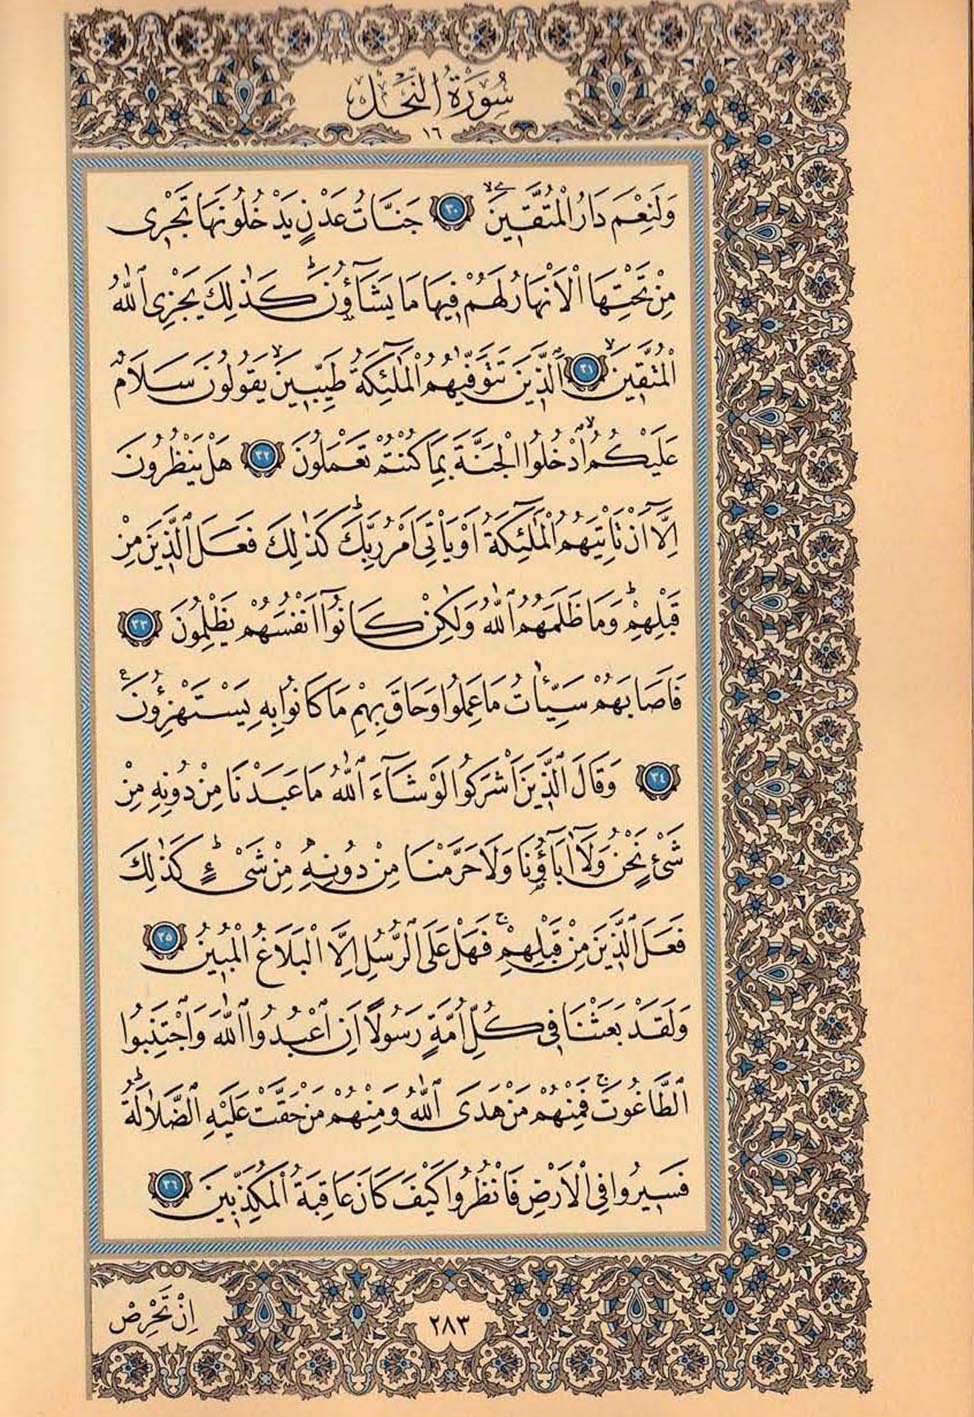 سُورَةُ النَّحْلِ
١٦
وَلَنِعْمَ دَارُ الْمُتَّقٖينَۙ ﴿٣٠﴾ جَنَّاتُ عَدْنٍ يَدْخُلُونَهَا تَجْرٖى
مِنْ تَحْتِهَا الْاَنْهَارُ لَهُمْ فٖيهَا مَا يَشَٓاؤُ۫نَۜ كَذٰلِكَ يَجْزِى اللّٰهُ
الْمُتَّقٖينَۙ ﴿٣١﴾ اَلَّذٖينَ تَتَوَفّٰيهُمُ الْمَلٰٓئِكَةُ طَيِّبٖينَۙ يَقُولُونَ سَلَامٌ
عَلَيْكُمُۙ ادْخُلُوا الْجَنَّةَ بِمَا كُنْتُمْ تَعْمَلُونَ ﴿٣٢﴾ هَلْ يَنْظُرُونَ
اِلَّٓا اَنْ تَاْتِيَهُمُ الْمَلٰٓئِكَةُ اَوْ يَاْتِىَ اَمْرُ رَبِّكَۜ كَذٰلِكَ فَعَلَ الَّذٖينَ مِنْ
قَبْلِهِمْۜ وَمَا ظَلَمَهُمُ اللّٰهُ وَلٰكِنْ كَانُٓوا اَنْفُسَهُمْ يَظْلِمُونَ ﴿٣٣﴾
فَاَصَابَهُمْ سَيِّـَٔاتُ مَا عَمِلُوا وَحَاقَ بِهِمْ مَا كَانُوا بِهٖ يَسْتَهْزِؤُ۫نَ۟
﴿٣٤﴾ وَقَالَ الَّذٖينَ اَشْرَكُوا لَوْ شَٓاءَ اللّٰهُ مَا عَبَدْنَا مِنْ دُونِهٖ مِنْ
شَیْءٍ نَحْنُ وَلَٓا اٰبَٓاؤُ۬نَا وَلَا حَرَّمْنَا مِنْ دُونِهٖ مِنْ شَیْءٍۜ كَذٰلِكَ
فَعَلَ الَّذٖينَ مِنْ قَبْلِهِمْۚ فَهَلْ عَلَى الرُّسُلِ اِلَّا الْبَلَاغُ الْمُبٖينُ ﴿٣٥﴾
وَلَقَدْ بَعَثْنَا فٖى كُلِّ اُمَّةٍ رَسُولًا اَنِ اعْبُدُوا اللّٰهَ وَاجْتَنِبُوا
الطَّاغُوتَۚ فَمِنْهُمْ مَنْ هَدَى اللّٰهُ وَمِنْهُمْ مَنْ حَقَّتْ عَلَيْهِ الضَّلَالَةُۜ
فَسٖيرُوا فِى الْاَرْضِ فَانْظُرُوا كَيْفَ كَانَ عَاقِبَةُ الْمُكَذِّبٖينَ ﴿٣٦﴾
اِنْ تَحْرِصْ
٢٨٣